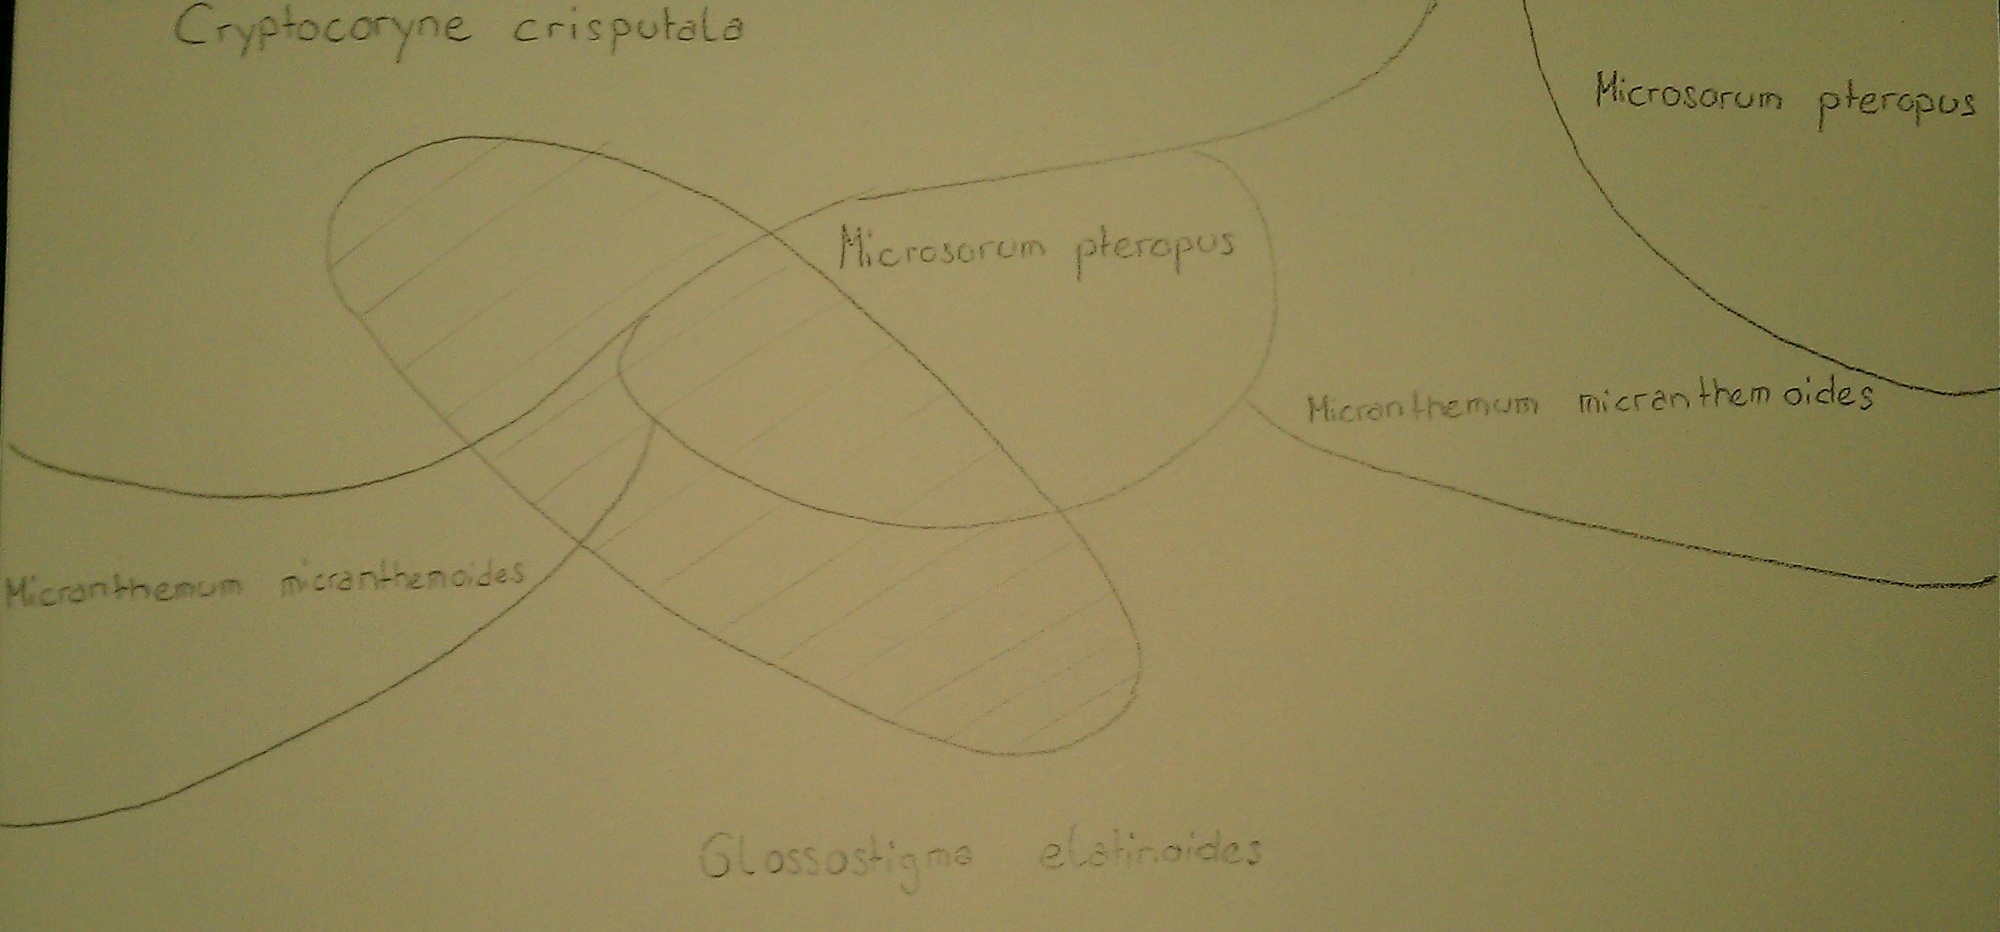 Cryptocoryne crisputala
Microsorum pteropus
Microsorum pteropus
Micranthemum micranthemoides
Micranthemum micranthemoides
Glossostigma elatinoides